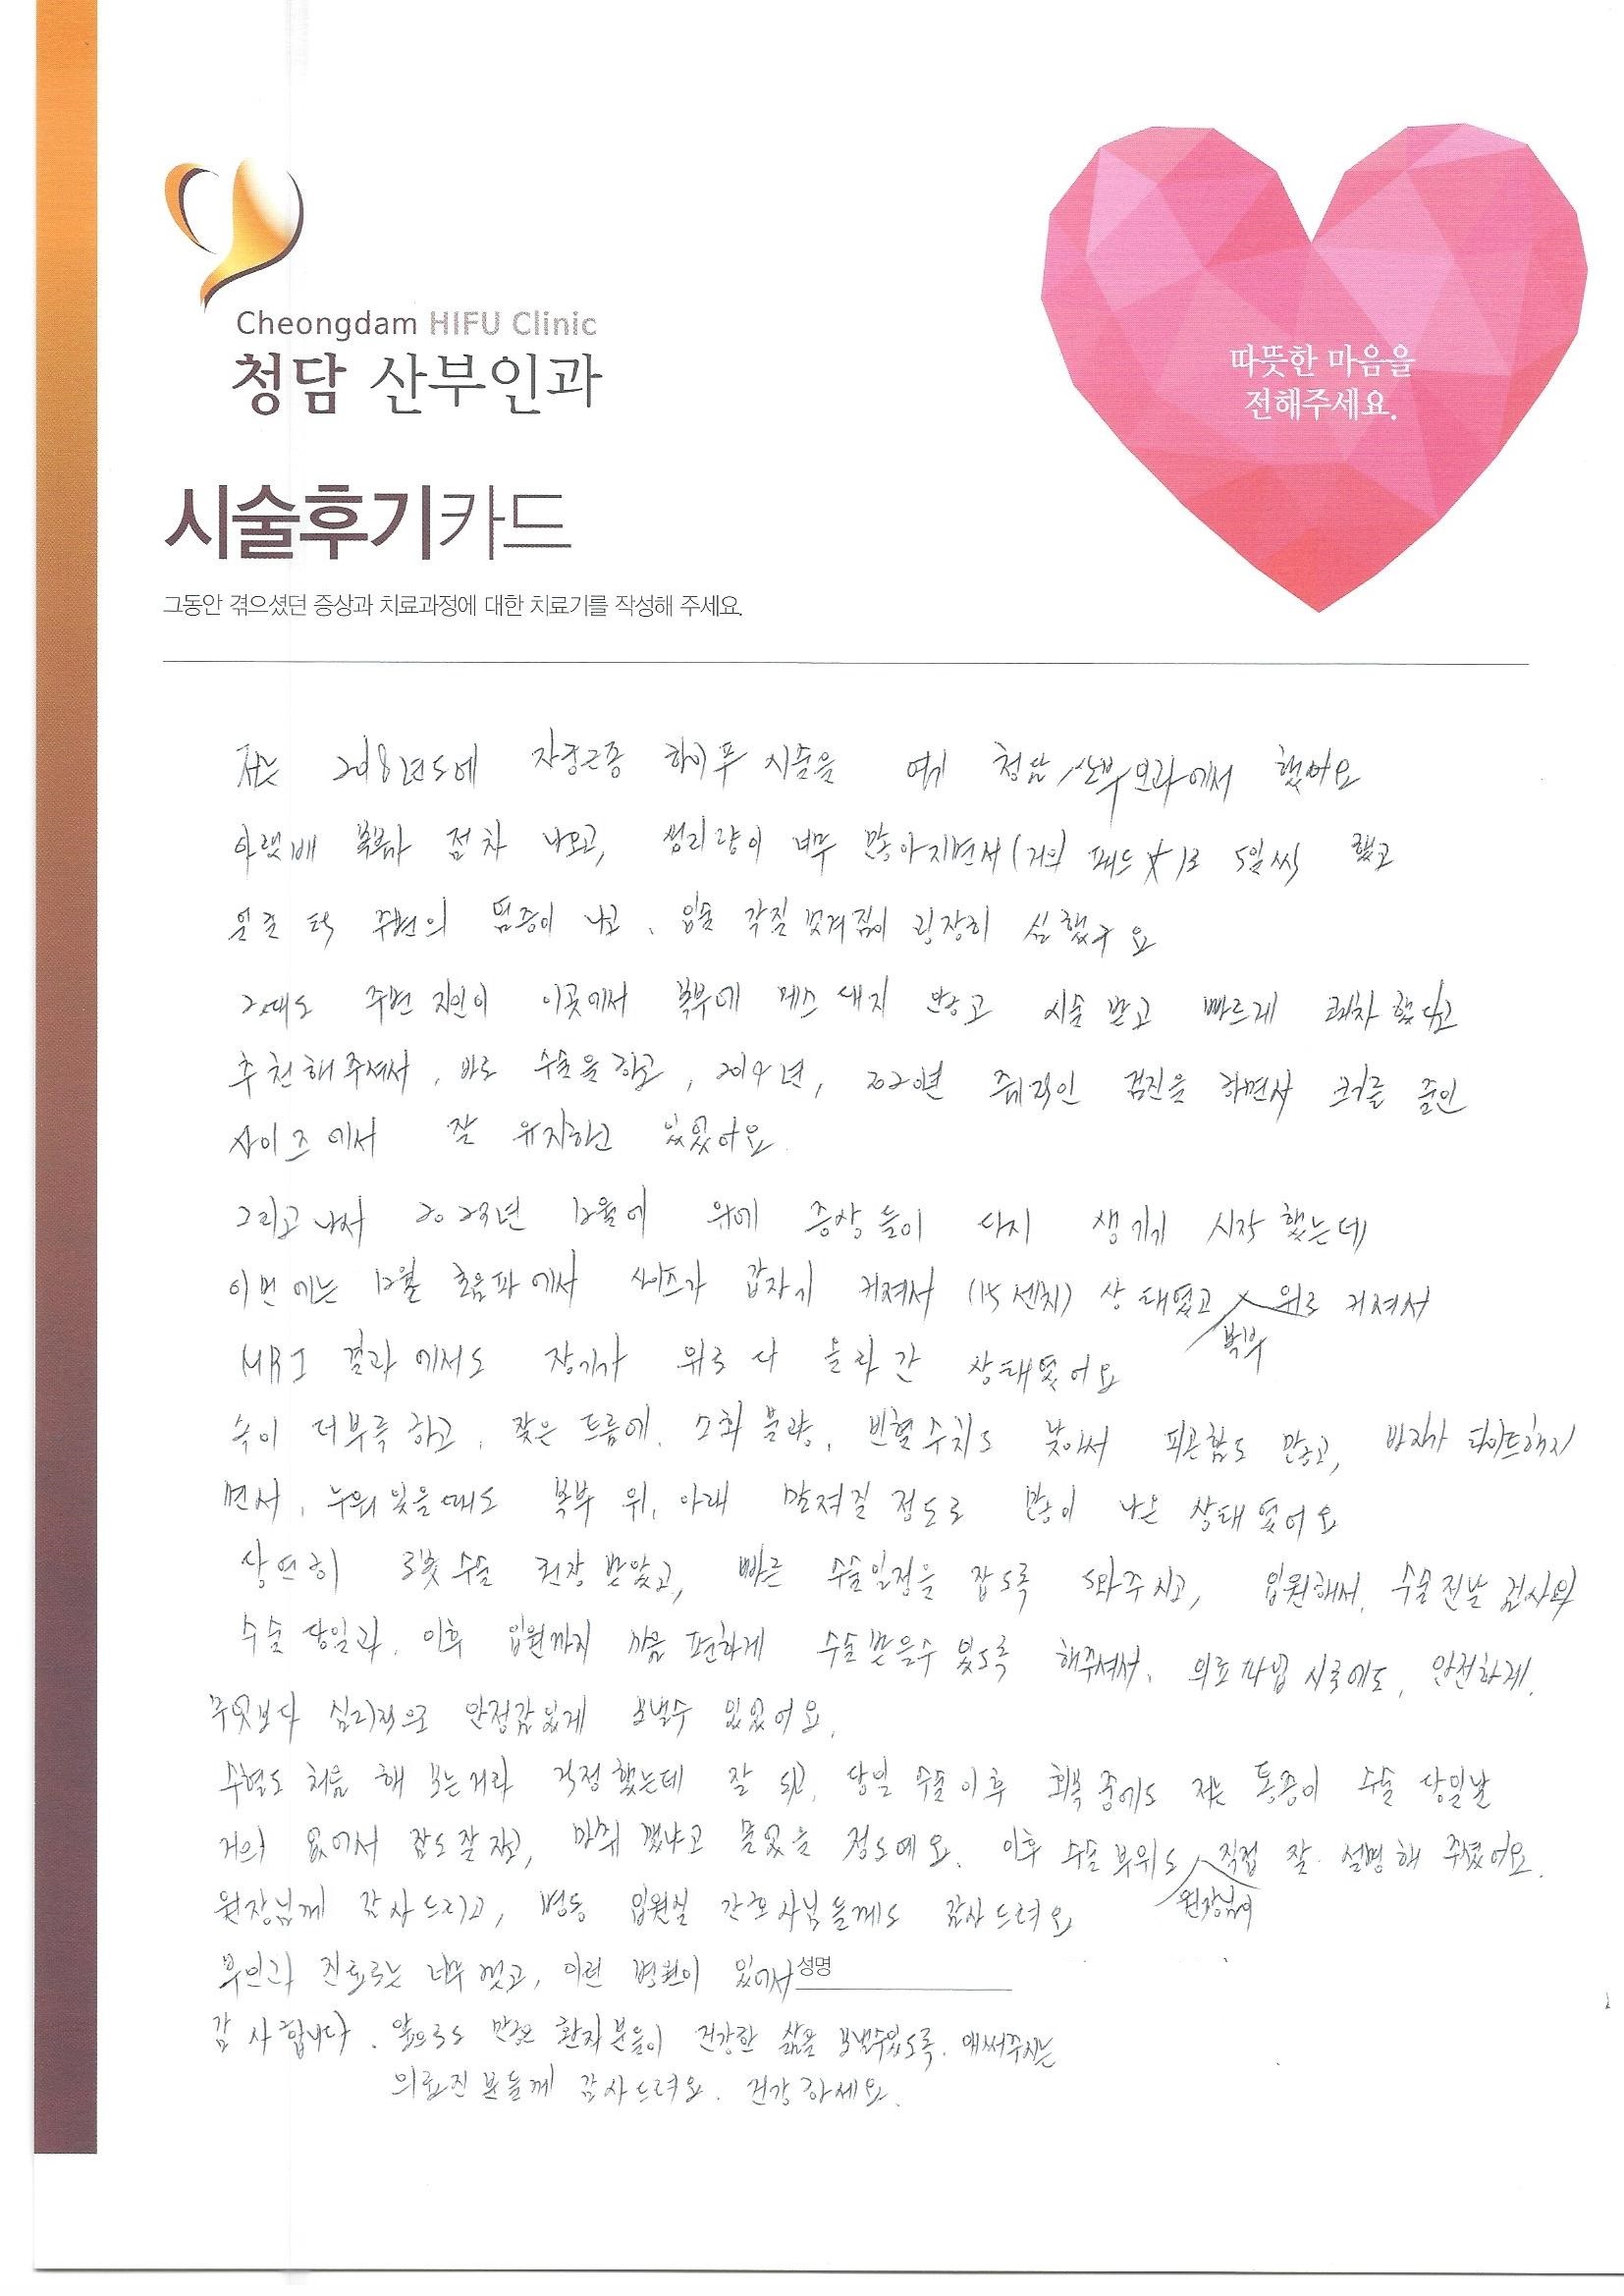 Cheongdam HIFU Clinic
청담 산부인과
따뜻한 마음을
전해주세요.
시술후기카드
그동안 겪으셨던 증상과 치료과정에 대한 치료기를 작성해 주세요.
저는 2018년도에 자궁근종 하이푸 시술을 여기 청담 산부인과에서 했어요
아랫배 복부가 점차 나오고, 생리량이 너무 많아지면서 (거의 패드 로 5일씩 했고
얼굴 턱 주변의 염증이 나고, 입술 각질 벗겨짐이 굉장히 심했구요
그때도 주변 지인이 이곳에서 복부에 메스 대지 않고 시술 받고 빠르게 쾌차 했다고
추천해주셔서, 바로 수술을 하고, 2019년, 2020년 주기적인 검진을 하면서 크기를 줄인
사이즈에서 잘 유지하고 있었어요.
그리고 나서 2023년 12월에 위에 증상들이 다시 생기기 시작했는데
이번에는 12월 초음파에서 사이즈가 갑자기 커져서 (15센치) 상태였고 복부 위로 커져서
MRI 결과에서도 장기가 위로 다 올라간 상태였어요
속이 더부룩하고, 잦은 트름에, 소화불량, 빈혈수치도 낮아서 피곤함도 많고, 바지가 타이트해지
면서, 누워있을때도 복부 위, 아래 만져질 정도로 많이 나온 상태였어요
당연히 로봇수술 권장 받았고, 빠른 수술일정을 잡도록 도와주시고, 입원해서, 수술전날 검사와
수술 당일과, 이후 입원까지 마음 편하게 수술받을수 있도록 해주셔서, 의료파업 시국에도, 안전하게,
무엇보다 심리적으로 안정감있게 보낼수 있었어요.
수혈도 처음 해 보는거라 걱정했는데 잘 되고, 당일 수술이후 회복중에도 저는 통증이 수술 당일날
거의 없어서 잠도 잘 자고, 마취 깼냐고 물었을 정도예요. 이후 수술부위도 원장님이 직접 잘 설명해 주셨어요.
원장님께 감사드리고, 병동 입원실 간호사님들께도 감사드려요
부인과 진료로는 너무 컸고, 이런 병원이 있어서
성명
감사합니다. 앞으로도 많은 환자분들이 건강한 삶을 보낼수있도록, 애써주시는
의료진분들께 감사드려요. 건강하세요.